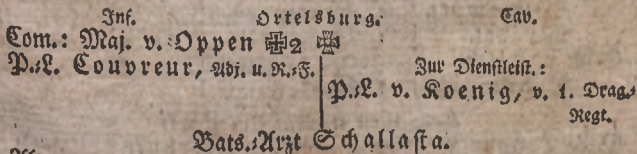 Inf. Ortelsburg. Cav.
Com.: Maj. v. Oppen ✠2 ✠
P.-L. Couvreur, Adj. u. R.-F.
Zur Dienstleist.:
P.-L. v. Koenig, v. 1. Drag.-
Regt.
Bats.-Arzt Schallasta.